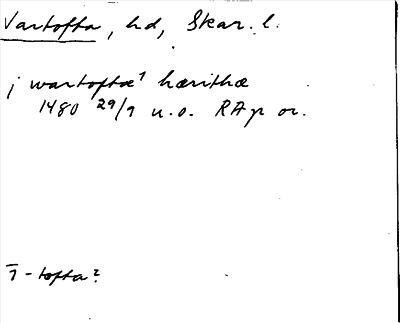 Vartofta, hd, Skar. l.
j wartoftæ¹ hærithæ
1480 29/9 u.o. RAp or.
1 - tofta?